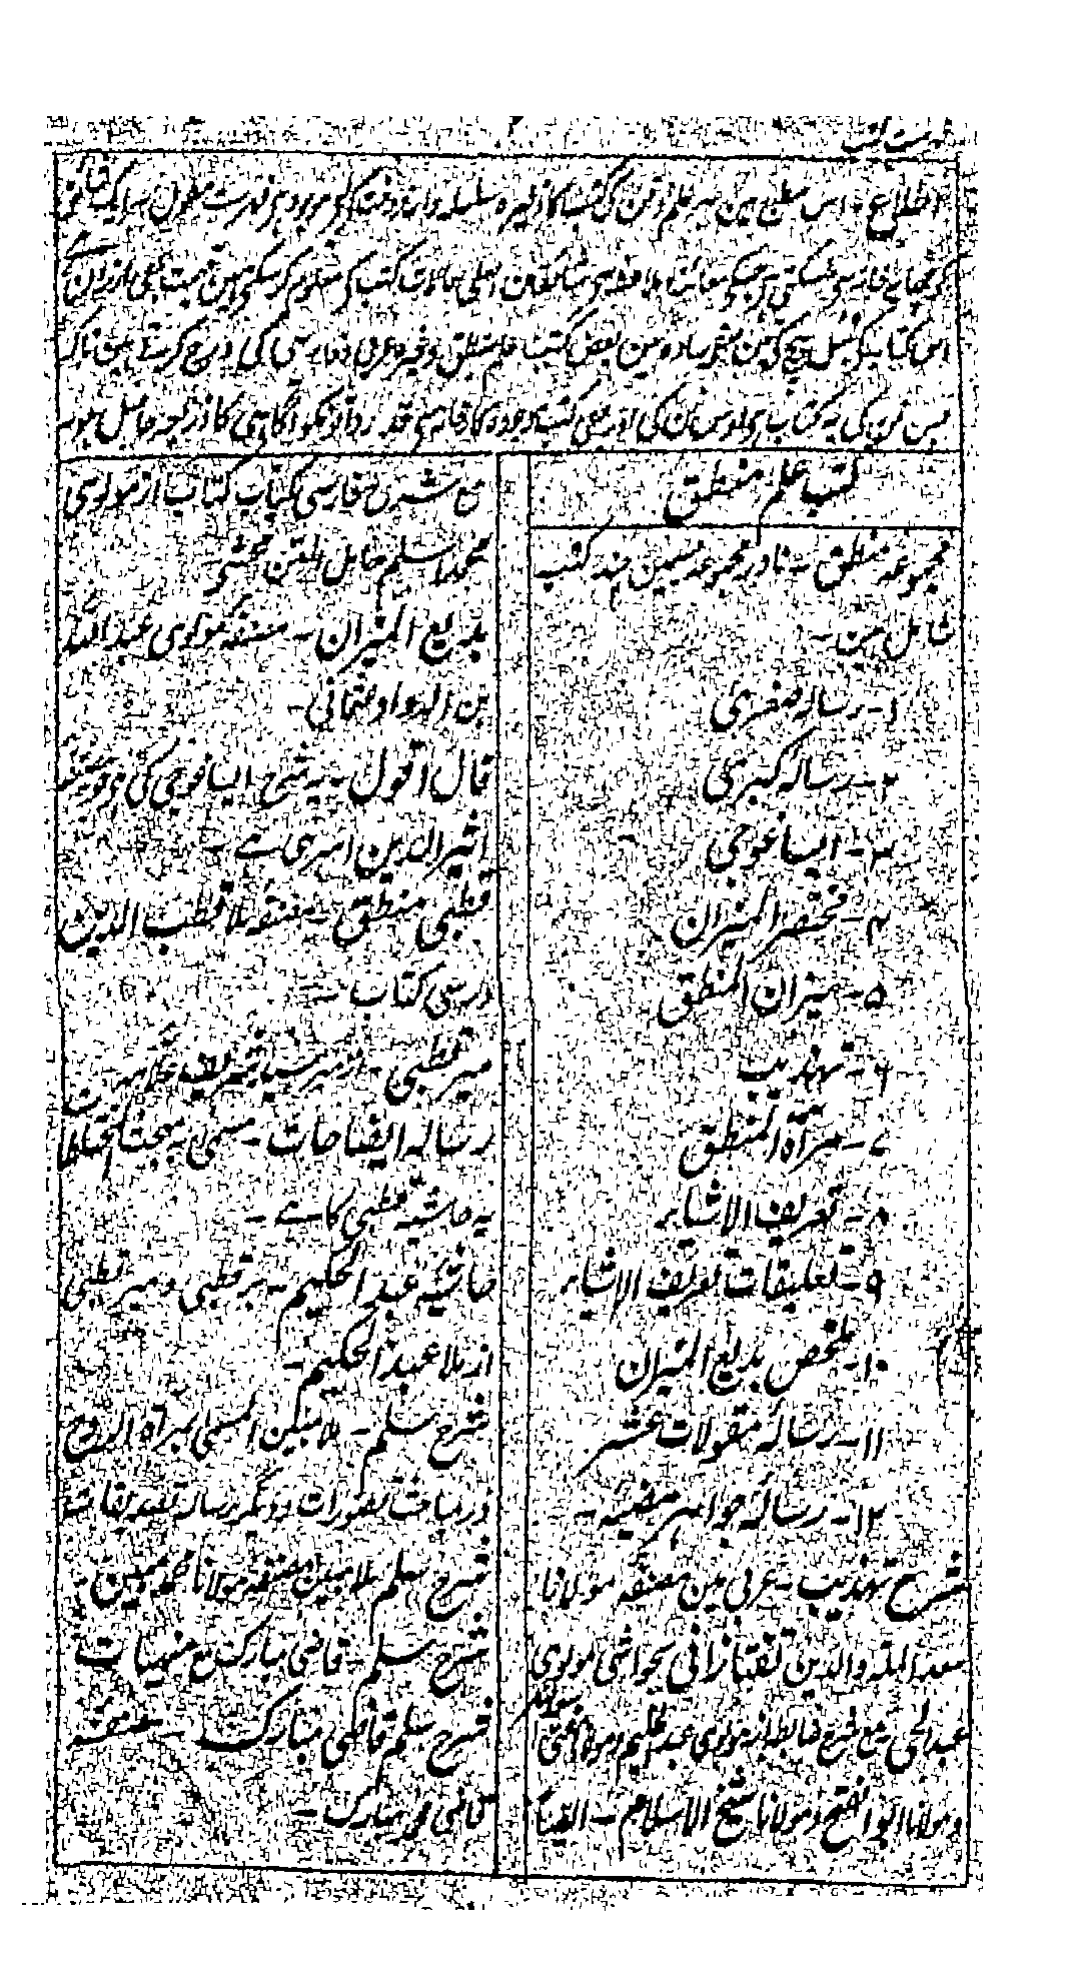 فہرست کتب
اطلاع - اس مطبع مین ہر علم و فن کی کتب کا ذخیرہ سلسلہ وار فروخت کے لیے موجود ہے فہرست مطول ہر ایک شائق
کو چھاپہ خانہ سے مل سکتی ہے جسکے معائنہ و ملاحظہ سے شائقان اصلی حالات کتب کے معلوم کر سکتے ہین قیمت بھی ارزان ہے
اس کتاب کے ٹیٹل پیج کے تین صفحہ جو سادہ ہین بعض کتب علم منطق وغیرہ عربی و فارسی کی درج کرتے ہین تاکہ
جس فن کی یہ کتاب ہے اوس فن کی اور بھی کتب موجودہ کارخانہ سے قدردانونکو آگاہی کا ذریعہ حاصل ہو
کتب علم منطق
مجموعہ منطق - نادر مجموعہ جسمین چند کتب
شامل ہین -
۱- رسالہ صغری
۲- رسالہ کبری
۳- ایساغوجی
۴- مختصر المیزان
۵- میزان المنطق
۶- تہذیب
۷- مرآۃ المنطق
۸- تعریف الاشیاء
۹- تعلیقات تعریف الاشیاء
۱۰- ملخص بدیع المیزان
۱۱- رسالہ مقولات عشر
۱۲- رسالہ جواہر مضیہ -
شرح تہذیب - عربی مین مصنفہ مولانا
سعد الملۃ والدین تفتازانی بحواشی مولوی
عبدالحی - مع شرح ضابطہ از مولوی عبدالحلیم و مولانا مفتی
و مولانا ابو الفتح و مولانا شیخ الاسلام - ایضاً
مع شرح فارسی کتاب از مولوی
محمد اسلم حامل المتن محشی
بدیع المیزان - مصنفہ مولوی عبداللہ
بن الہداد عثمانی -
قال اقول - یہ شرح ایساغوجی کی
اثیر الدین ابہری ہے -
قطبی منطق - مصنفہ ملا قطب الدین
درسی کتاب -
میر قطبی - از میر سید شریف
رسالہ ایضاحات - مسمی بہ
یہ حاشیہ قطبی کا ہے -
حاشیہ عبد الحکیم - بر قطبی و میر قطبی
از ملا عبد الحکیم -
شرح سلم - ملا مبین المسمی بمرآۃ الشروح
در مباحث تصورات و دیگر رسالہ تصدیقات
شرح سلم ملا مبین مصنفہ مولانا محمد مبین -
شرح سلم - قاضی مبارک مع منہیات
شرح سلم قاضی مبارک - مصنفہ
قاضی محمد مبارک -